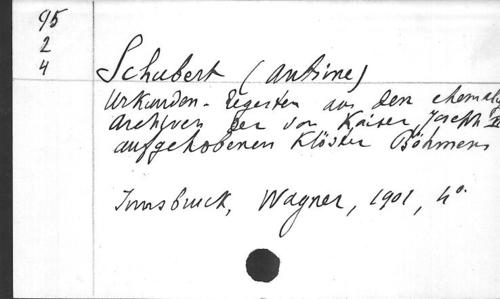 95
2
4
Schubert (Antoine)
Urkunden-Regesten aus den ehemalg
Archiven der von Kaiser Joseph II
aufgehobenen Klöster Böhmens
Innsbruck, Wagner, 1901, 4°.